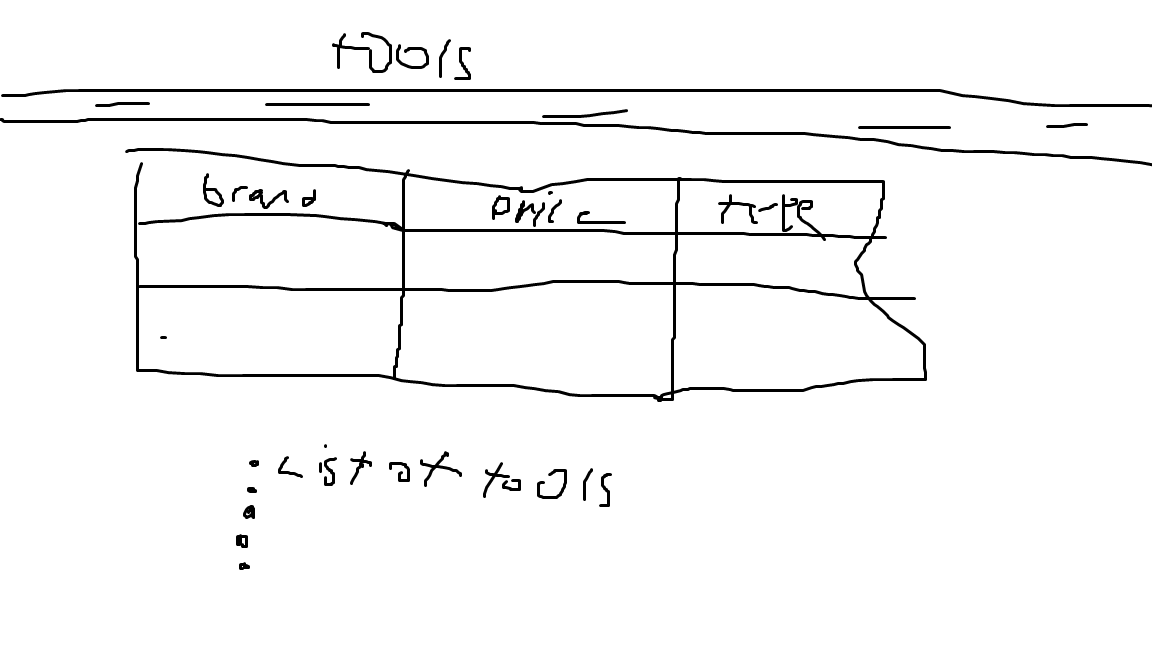 tools
brand price type
List of tools